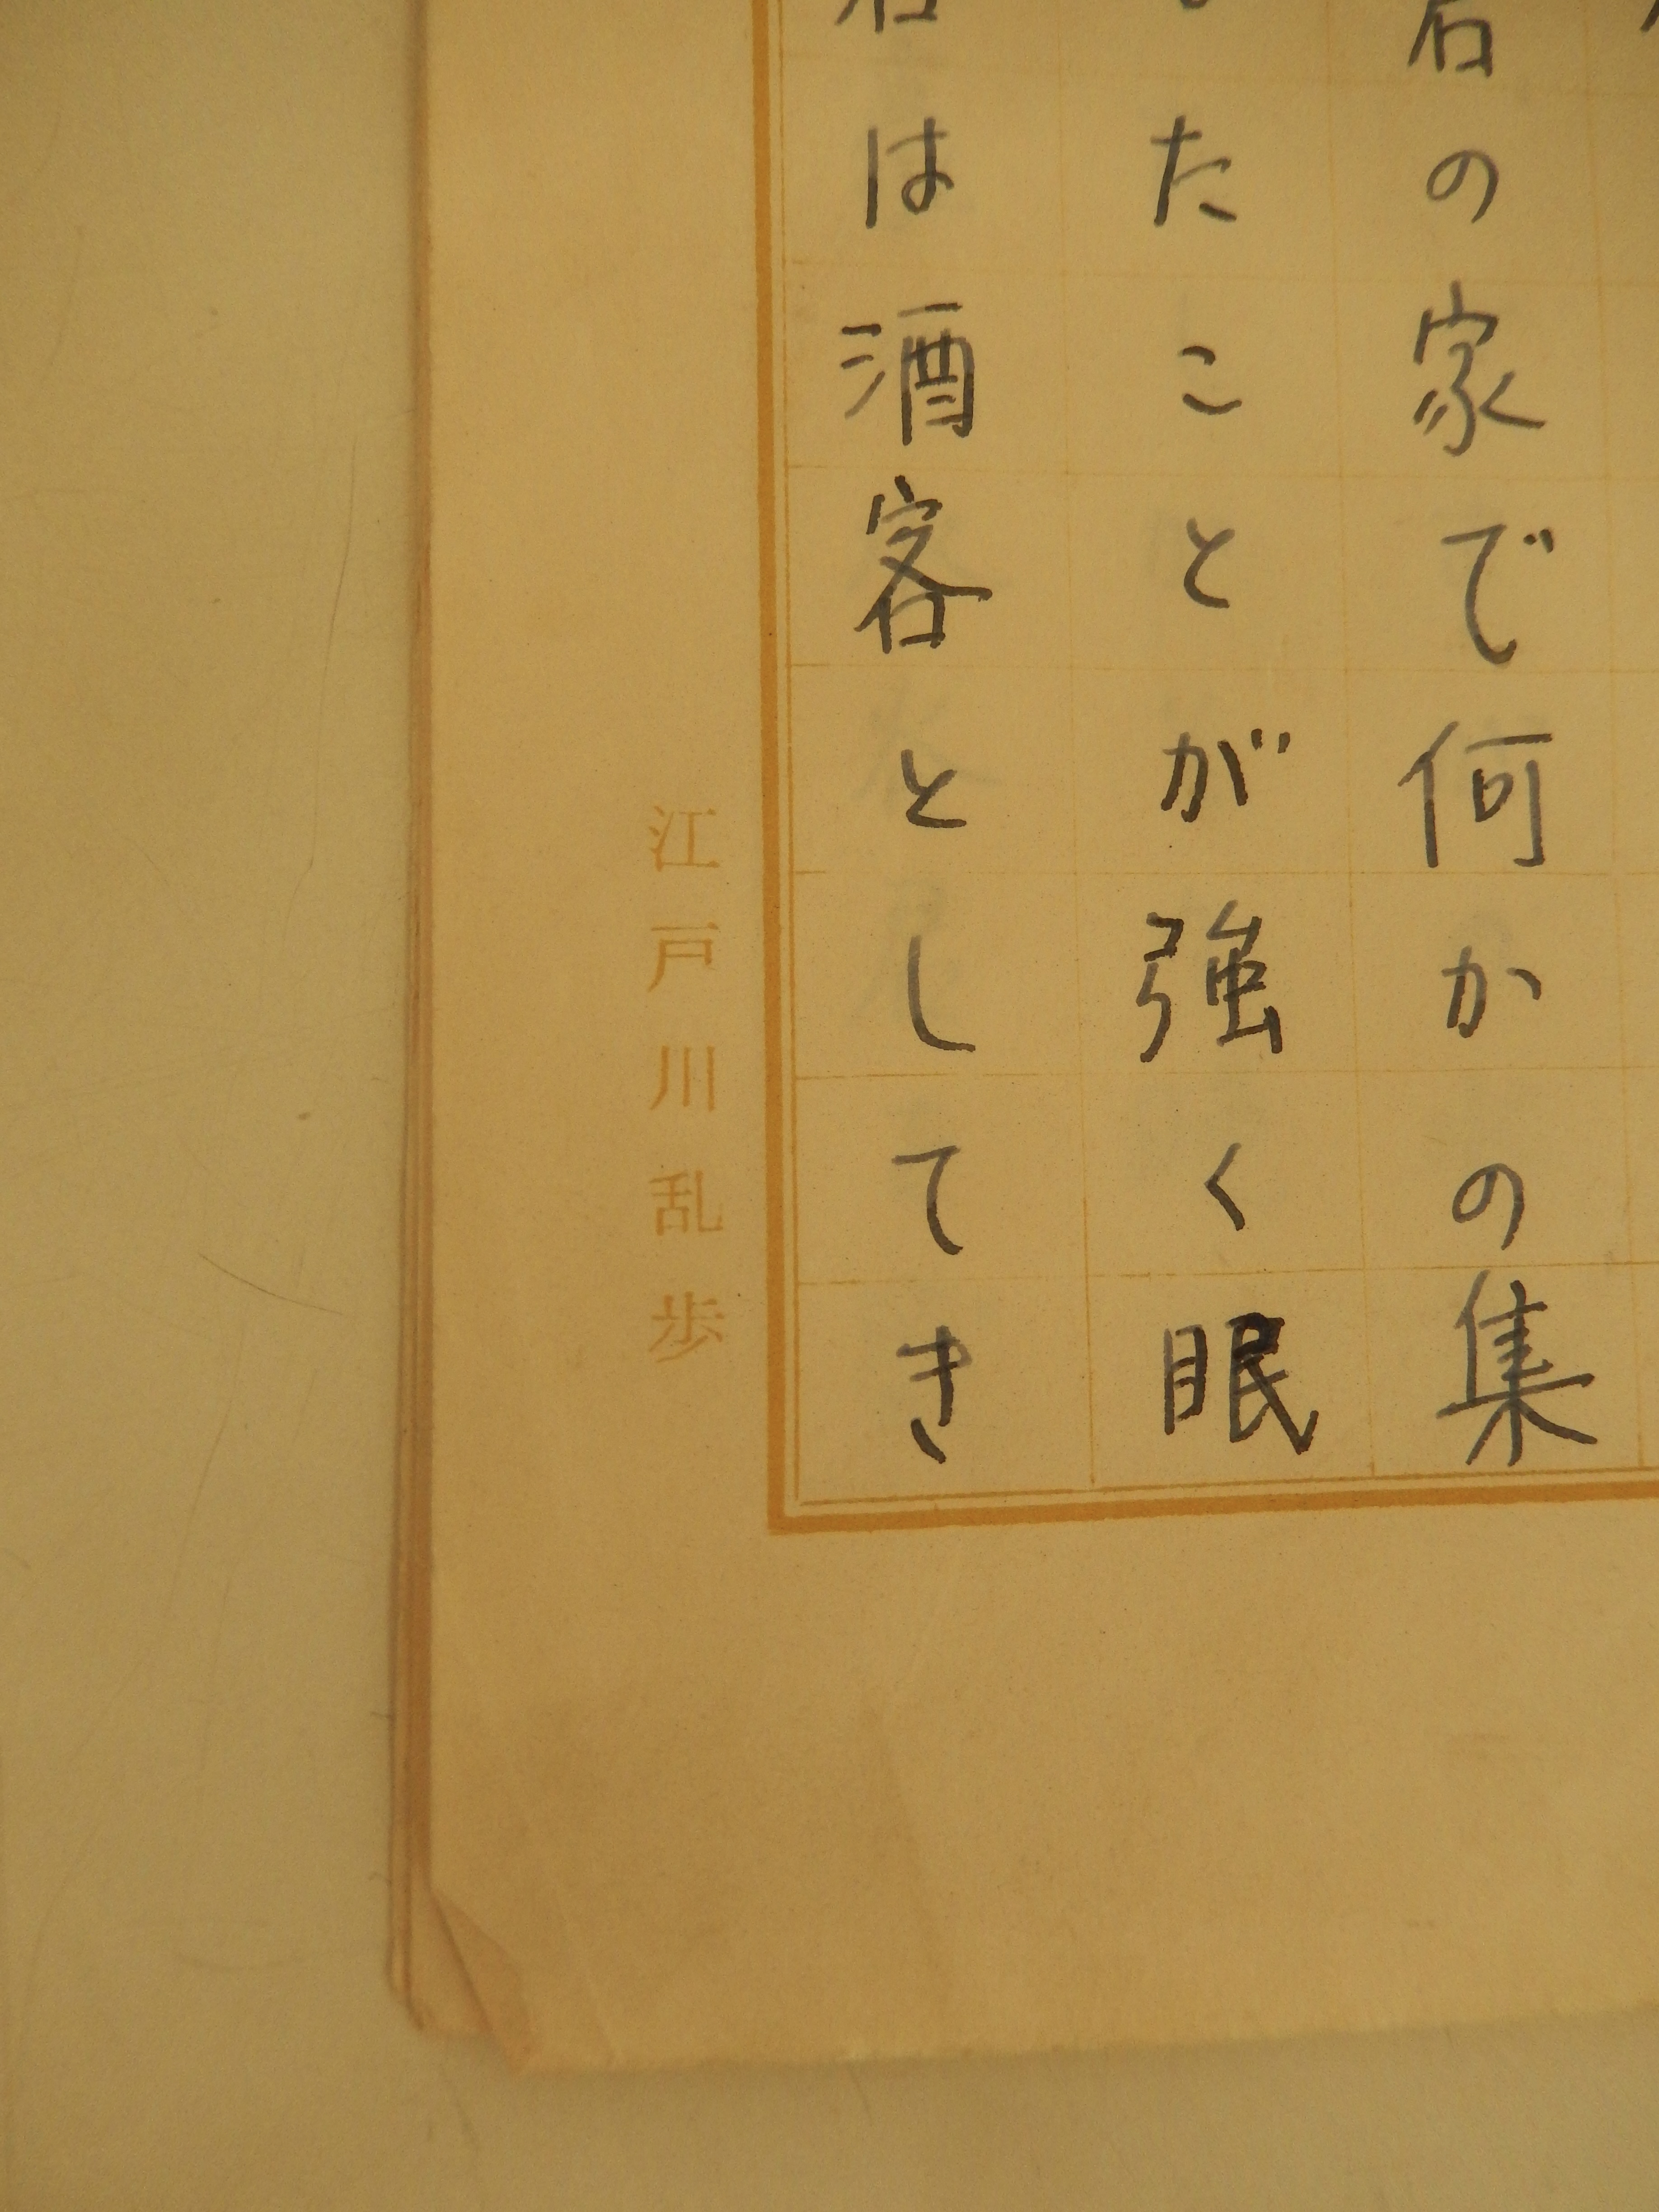 君の家で何かの集
たことが強く眠
は酒客としてき
江戸川乱歩